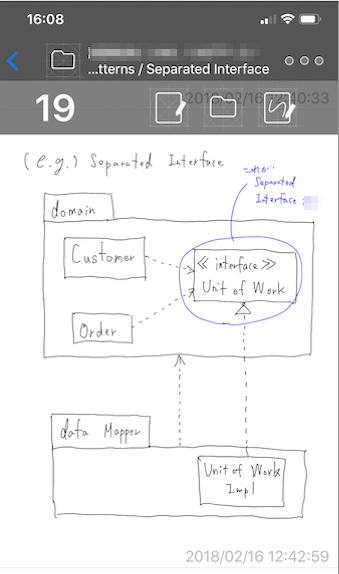 16:08
...tterns / Separated Interface
19
2018/02/16 12:40:33
(e.g.) Separated Interface
これが…
Separated
Interface
domain
Customer
≪ interface ≫
Unit of Work
Order
data Mapper
Unit of Work
Impl
2018/02/16 12:42:59